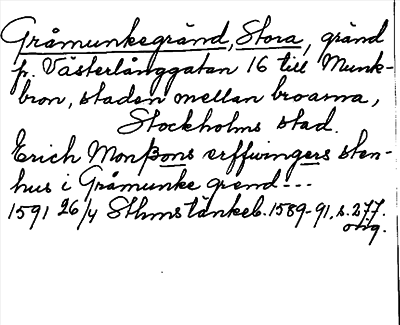 Gråmunkegränd, Stora, gränd
fr. Västerlånggatan 16 till Munk-
bron, staden mellan broarna,
Stockholms stad.
Erich Monßons erffwingers sten-
hus i Gråmunke grend---
1591 26/4 Sthms tänkeb. 1589-91, s. 277.
orig.